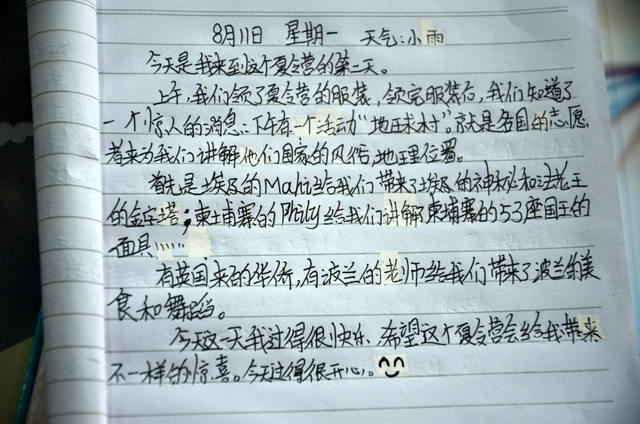 8月11日 星期一 天气:小雨
今天是我来到这个夏令营的第二天。
上午,我们领了夏令营的服装,领完服装后,我们知道了
一个惊人的消息:下午有一个活动“地球村”。就是各国的志愿
者来为我们讲解他们国家的风俗,地理位置。
首先是埃及的Mahi给我们带来了埃及的神秘和法老王
的金字塔;柬土甫寨的Phily给我们讲解柬埔寨的53座国王的
面具……
有英国来的华侨,有波兰的老师给我们带来了波兰的美
食和舞蹈。
今天这一天我过得很快乐,希望这个夏令营会给我带来
不一样的惊喜。今天过得很开心。